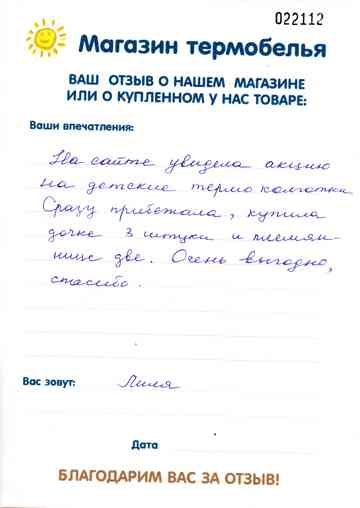 022112
Магазин термобелья
ВАШ ОТЗЫВ О НАШЕМ МАГАЗИНЕ
ИЛИ О КУПЛЕННОМ У НАС ТОВАРЕ:
Ваши впечатления:
На сайте увидела акцию
на детские термо колготки
Сразу прибежала, купила
дочке 3 штуки и племян-
нице две. Очень выгодно,
спасибо.
Вас зовут: Лиля
Дата
БЛАГОДАРИМ ВАС ЗА ОТЗЫВ!